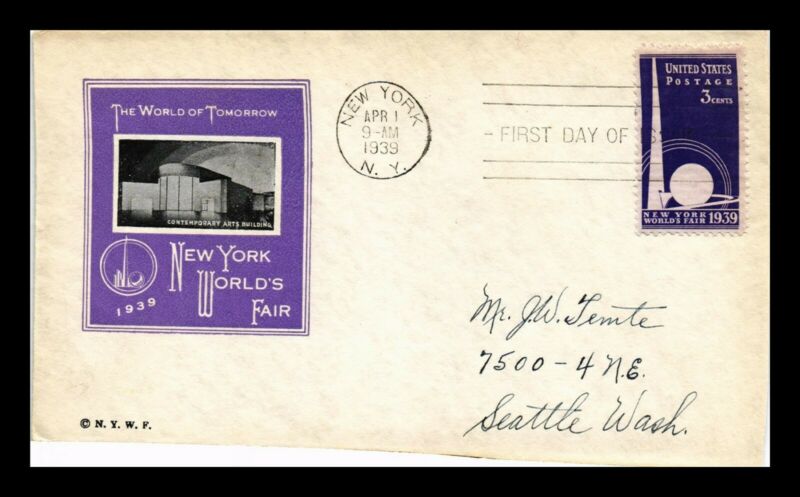 THE WORLD OF TOMORROW
CONTEMPORARY ARTS BUILDING
NEW YORK
WORLD'S
FAIR
1939
© N. Y. W. F.
NEW YORK
APR 1
9-AM
1939
N. Y.
FIRST DAY OF
UNITED STATES
POSTAGE
3 CENTS
NEW YORK
WORLD'S FAIR 1939
Mr. J.W. Temte
7500-4 N.E.
Seattle Wash.